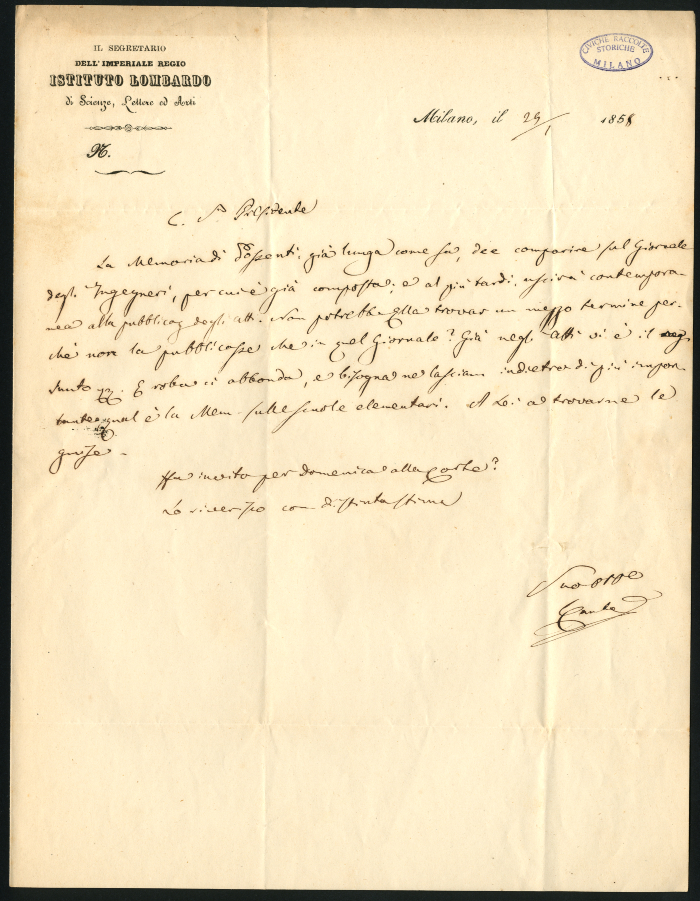 IL SEGRETARIO
DELL'IMPERIALE REGIO
ISTITUTO LOMBARDO
di Scienze, Lettere ed Arti
N.
CIVICHE RACCOLTE
STORICHE
MILANO
Milano, il 29/1 1858
C. Sr Presidente
La Memoria di Possenti, già lunga come sa, dee comparire sul Giornale
degli Ingegneri, per cui è già composta, e al più tardi, uscirà contempora-
nea alla pubblicaz degli atti. Non potrebb'Ella trovar un mezzo termine per-
chè non la pubblicasse che in quel Giornale? Già negli atti vi è il
sunto. E roba ci abbonda, e bisogna ne lasciam indietro di più impor-
tante, qual è la Mem. sulle scuole elementari. A Lei a trovarne le
guise.
Ha invito per domenica alla Corte?
La riverisco con distinta stima
Suo
Cantù